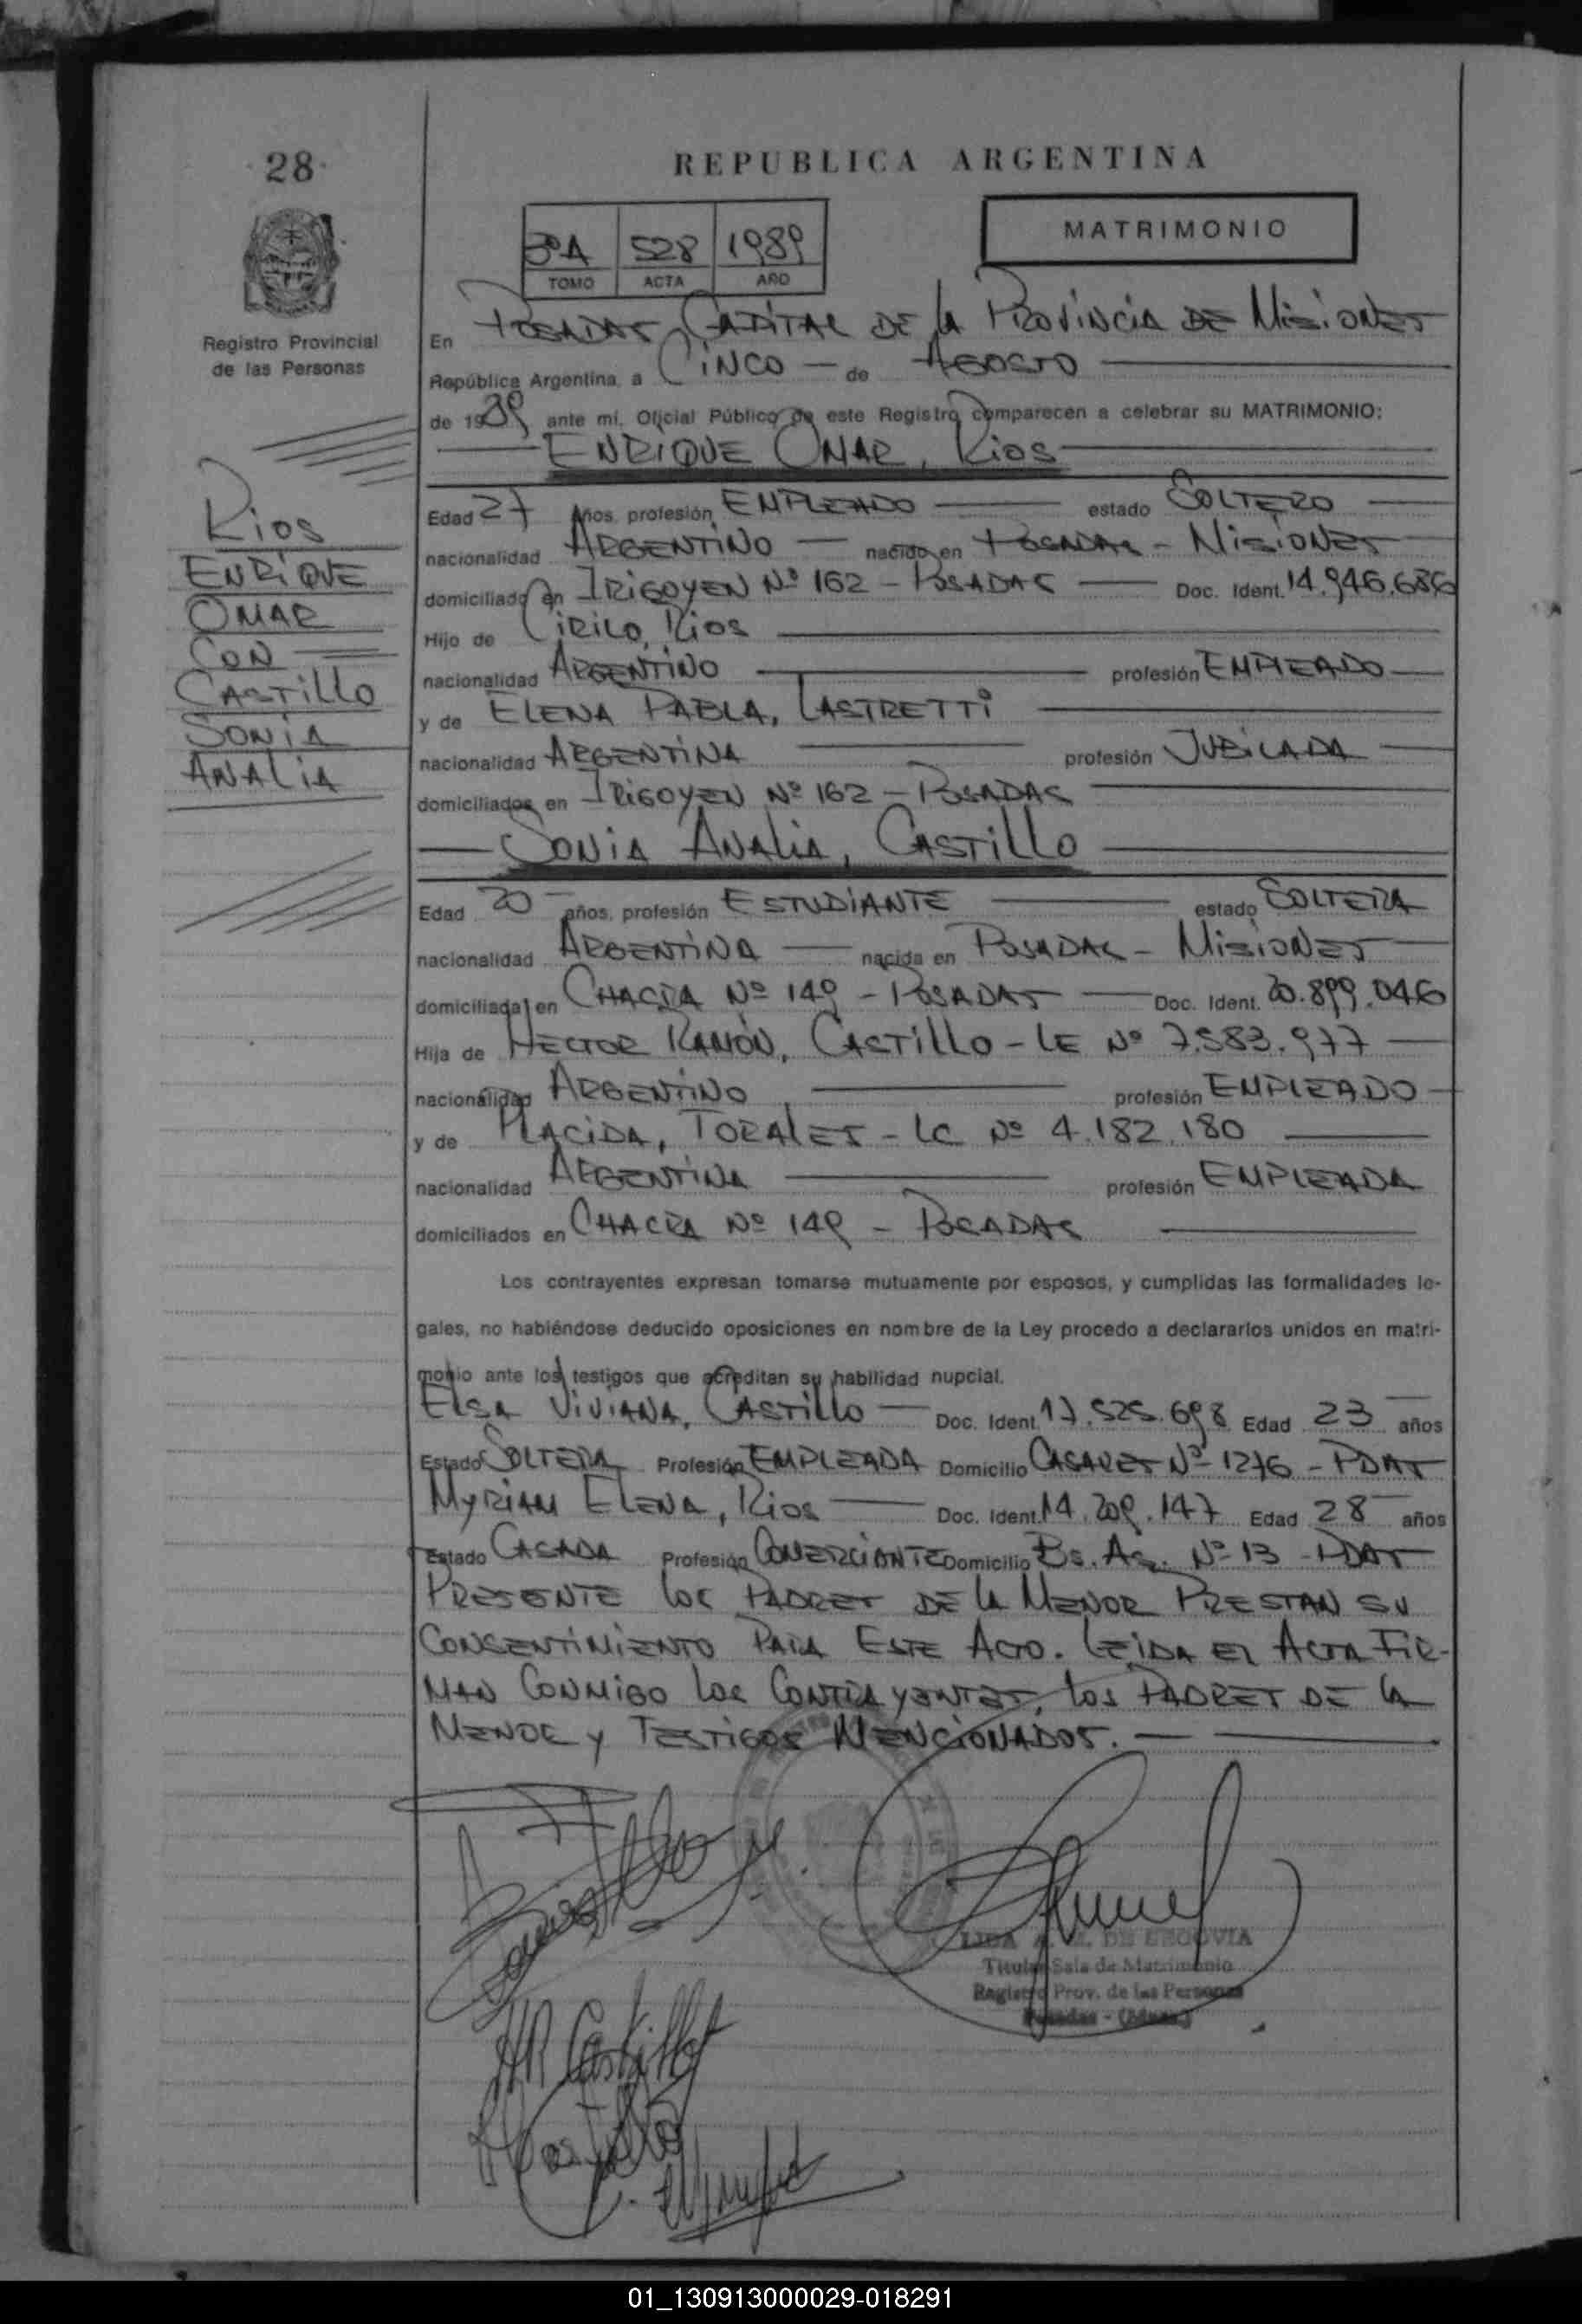 28
REPUBLICA ARGENTINA
MATRIMONIO
3ºA 528 1989
TOMO ACTA AÑO
Registro Provincial
de las Personas
En POSADAS, CAPITAL DE LA PROVINCIA DE MISIONES
República Argentina, a CINCO — de AGOSTO
de 1989 ante mí, Oficial Público de este Registro comparecen a celebrar su MATRIMONIO:
ENRIQUE OMAR, RIOS
RIOS
ENRIQUE
OMAR
CON
CASTILLO
SONIA
ANALIA
Edad 27 Años, profesión EMPLEADO estado SOLTERO
nacionalidad ARGENTINO — nacido en POSADAS - MISIONES
domiciliado en IRIGOYEN Nº 162 - POSADAS — Doc. Ident. 14.946.686
Hijo de CIRILO, RIOS
nacionalidad ARGENTINO profesión EMPLEADO
y de ELENA PABLA, LASTRETTI
nacionalidad ARGENTINA profesión JUBILADA
domiciliados en IRIGOYEN Nº 162 - POSADAS
SONIA ANALIA, CASTILLO
Edad 20 años, profesión ESTUDIANTE estado SOLTERA
nacionalidad ARGENTINA — nacida en POSADAS - MISIONES
domiciliada en CHACRA Nº 149 - POSADAS — Doc. Ident. 20.899.046
Hija de HECTOR RAMÓN, CASTILLO - LE Nº 7.583.977
nacionalidad ARGENTINO profesión EMPLEADO
y de PLACIDA, TORALES - LC Nº 4.182.180
nacionalidad ARGENTINA profesión EMPLEADA
domiciliados en CHACRA Nº 149 - POSADAS
Los contrayentes expresan tomarse mutuamente por esposos, y cumplidas las formalidades le-
gales, no habiéndose deducido oposiciones en nombre de la Ley procedo a declararlos unidos en matri-
monio ante los testigos que acreditan su habilidad nupcial.
ELSA VIVIANA, CASTILLO — Doc. Ident. 17.525.698 Edad 23 años
Estado SOLTERA Profesión EMPLEADA Domicilio CASARES Nº 1276 - PDAS
MYRIAM ELENA, RIOS — Doc. Ident. 14.209.147 Edad 28 años
Estado CASADA Profesión COMERCIANTE Domicilio Bs. As. Nº 13 - PDAS
PRESENTE LOS PADRES DE LA MENOR PRESTAN SU
CONSENTIMIENTO PARA ESTE ACTO. LEIDA EL ACTA FIR-
MAN CONMIGO LOS CONTRAYENTES, LOS PADRES DE LA
MENOR Y TESTIGOS MENCIONADOS.
HR Castillo
LIDA A. M. DE SEGOVIA
Titular Sala de Matrimonio
Registro Prov. de las Personas
Posadas - (Mnes.)
01_130913000029-018291